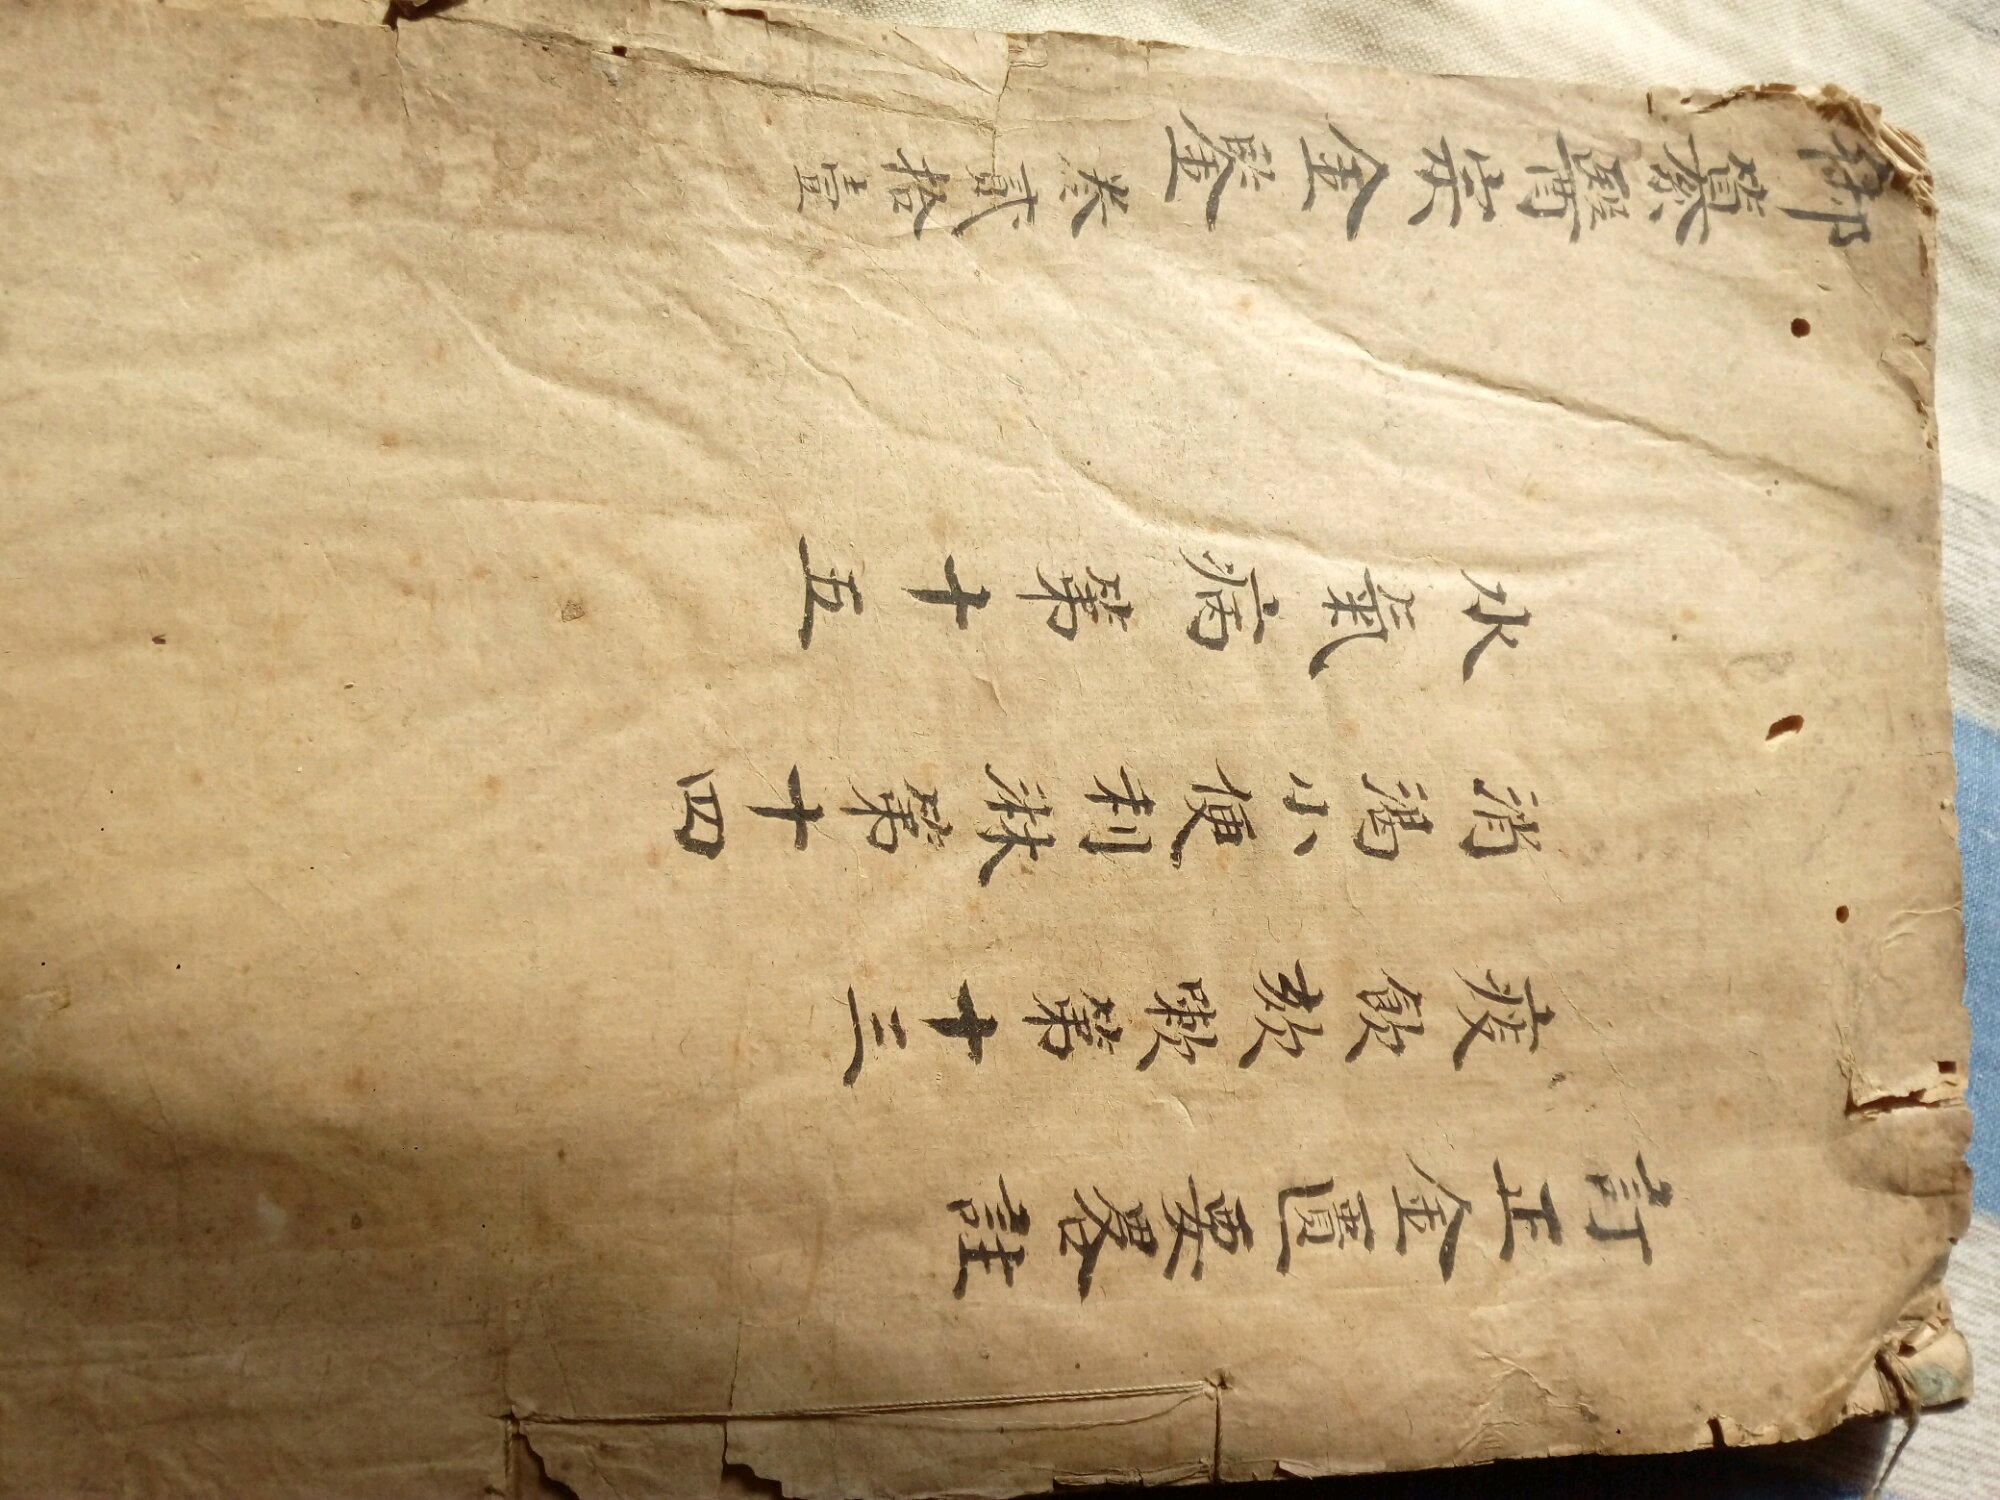 訂正金匱要略註
痰飲欬嗽第十三
消渴小便利淋第十四
水氣病第十五
御纂醫宗金鑒卷貳拾壹